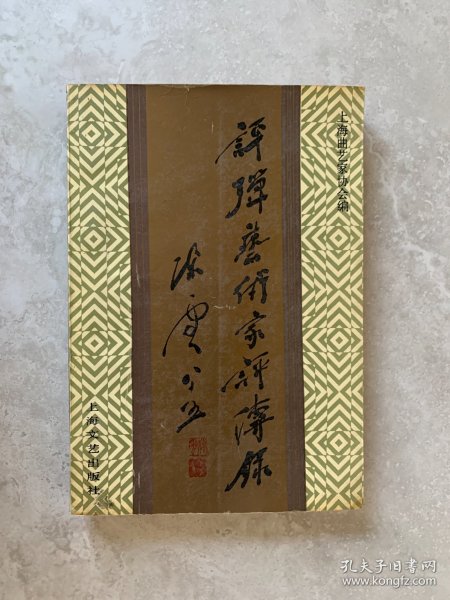 上海曲艺家协会编
評彈藝術家評傳錄
陳雲
上海文艺出版社
孔夫子旧书网
www.kongfz.com